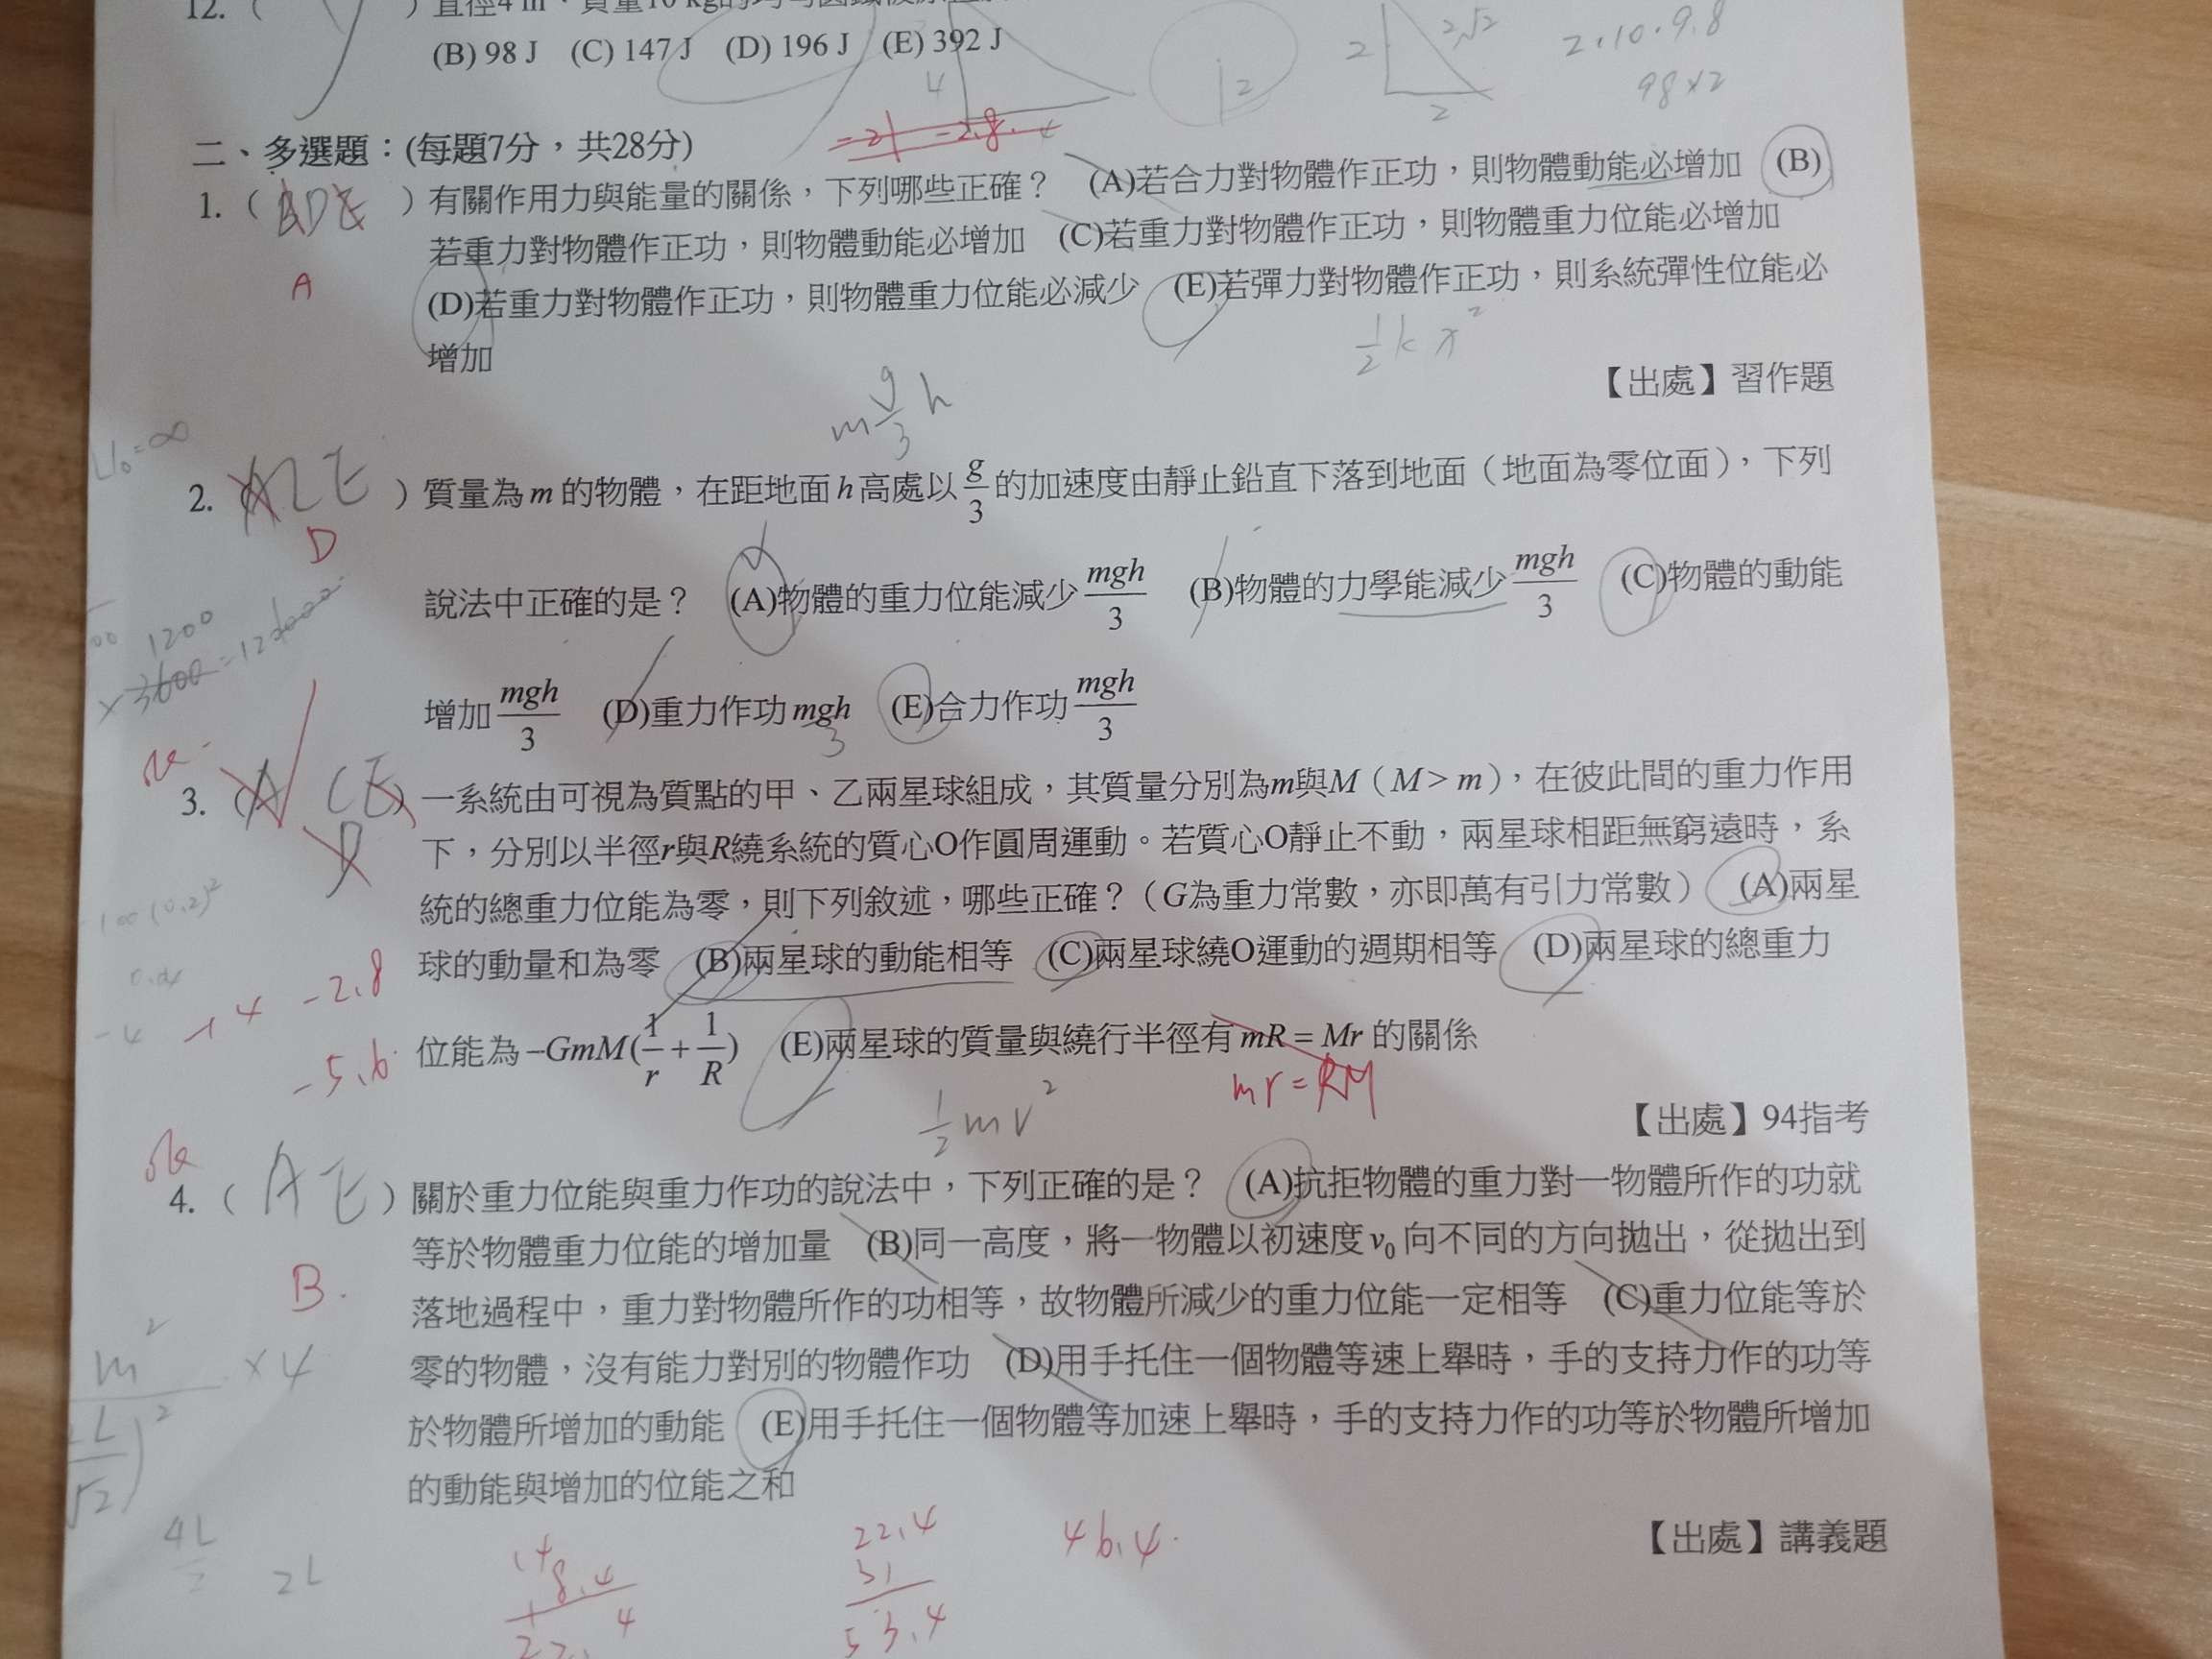 12. (
(B) 98 J (C) 147 J (D) 196 J (E) 392 J
4
2
2
2√2
2
2.10.9.8
98×2
二、多選題:(每題7分,共28分)
1. ( ) 有關作用力與能量的關係,下列哪些正確? (A)若合力對物體作正功,則物體動能必增加 (B)
若重力對物體作正功,則物體動能必增加 (C)若重力對物體作正功,則物體重力位能必增加
A
(D)若重力對物體作正功,則物體重力位能必減少 (E)若彈力對物體作正功,則系統彈性位能必
增加
1/2 k x²
【出處】習作題
m g/3 h
U₀=∞
2. ( ) 質量為 m 的物體,在距地面 h 高處以 g/3 的加速度由靜止鉛直下落到地面(地面為零位面),下列
D
說法中正確的是? (A)物體的重力位能減少 mgh/3 (B)物體的力學能減少 mgh/3 (C)物體的動能
1200
×3600
增加 mgh/3 (D)重力作功 mgh (E)合力作功 mgh/3
3
3. (A CE) 一系統由可視為質點的甲、乙兩星球組成,其質量分別為m與M(M > m),在彼此間的重力作用
D
下,分別以半徑r與R繞系統的質心O作圓周運動。若質心O靜止不動,兩星球相距無窮遠時,系
統的總重力位能為零,則下列敘述,哪些正確?(G為重力常數,亦即萬有引力常數) (A)兩星
100(0.2)²
球的動量和為零 (B)兩星球的動能相等 (C)兩星球繞O運動的週期相等 (D)兩星球的總重力
-2.8
-4
位能為 –GmM(1/r + 1/R) (E)兩星球的質量與繞行半徑有 mR = Mr 的關係
-5.6
mr=RM
1/2 mv²
【出處】94指考
4. ( A E ) 關於重力位能與重力作功的說法中,下列正確的是? (A)抗拒物體的重力對一物體所作的功就
等於物體重力位能的增加量 (B)同一高度,將一物體以初速度 v₀ 向不同的方向拋出,從拋出到
B.
落地過程中,重力對物體所作的功相等,故物體所減少的重力位能一定相等 (C)重力位能等於
零的物體,沒有能力對別的物體作功 (D)用手托住一個物體等速上舉時,手的支持力作的功等
m² ×4
於物體所增加的動能 (E)用手托住一個物體等加速上舉時,手的支持力作的功等於物體所增加
的動能與增加的位能之和
【出處】講義題
4L
2L
22.4
31
53.4
46.4